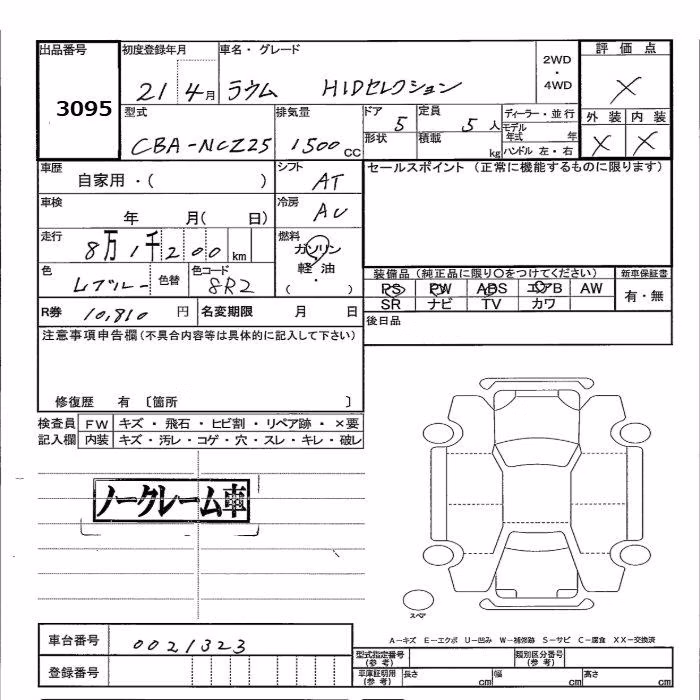 出品番号 初度登録年月 車名・グレード 評価点
3095 21 4月 ラウム HIDセレクション 2WD・4WD X
型式 排気量 ドア 定員 ディーラー・並行 外装 内装
CBA-NCZ25 1500cc 5 5人 モデル年式 年 X X
形状 積載 kg ハンドル 左・右
車歴 自家用・( ) シフト AT セールスポイント (正常に機能するものに限ります)
車検 年 月( 日) 冷房 AC
走行 8万1千200km 燃料 ガソリン・軽油・( )
色 色替 色コード 8R2
装備品 (純正品に限り○をつけてください) 新車保証書
PS PW ABS エアB AW 有・無
SR ナビ TV カワ
R券 10,810円 名変期限 月 日 後日品
注意事項申告欄(不具合内容等は具体的に記入して下さい)
修復歴 有 〔箇所 〕
検査員記入欄 FW キズ・飛石・ヒビ割・リペア跡・×要
内装 キズ・汚レ・コゲ・穴・スレ・キレ・破レ
ノークレーム車
スペア
A-キズ E-エクボ U-凹み W-補修跡 S-サビ C-腐食 XX-交換済
車台番号 0021323
型式指定番号(参考) 類別区分番号(参考)
登録番号 車庫証明用(参考) 長さ cm 幅 cm 高さ cm